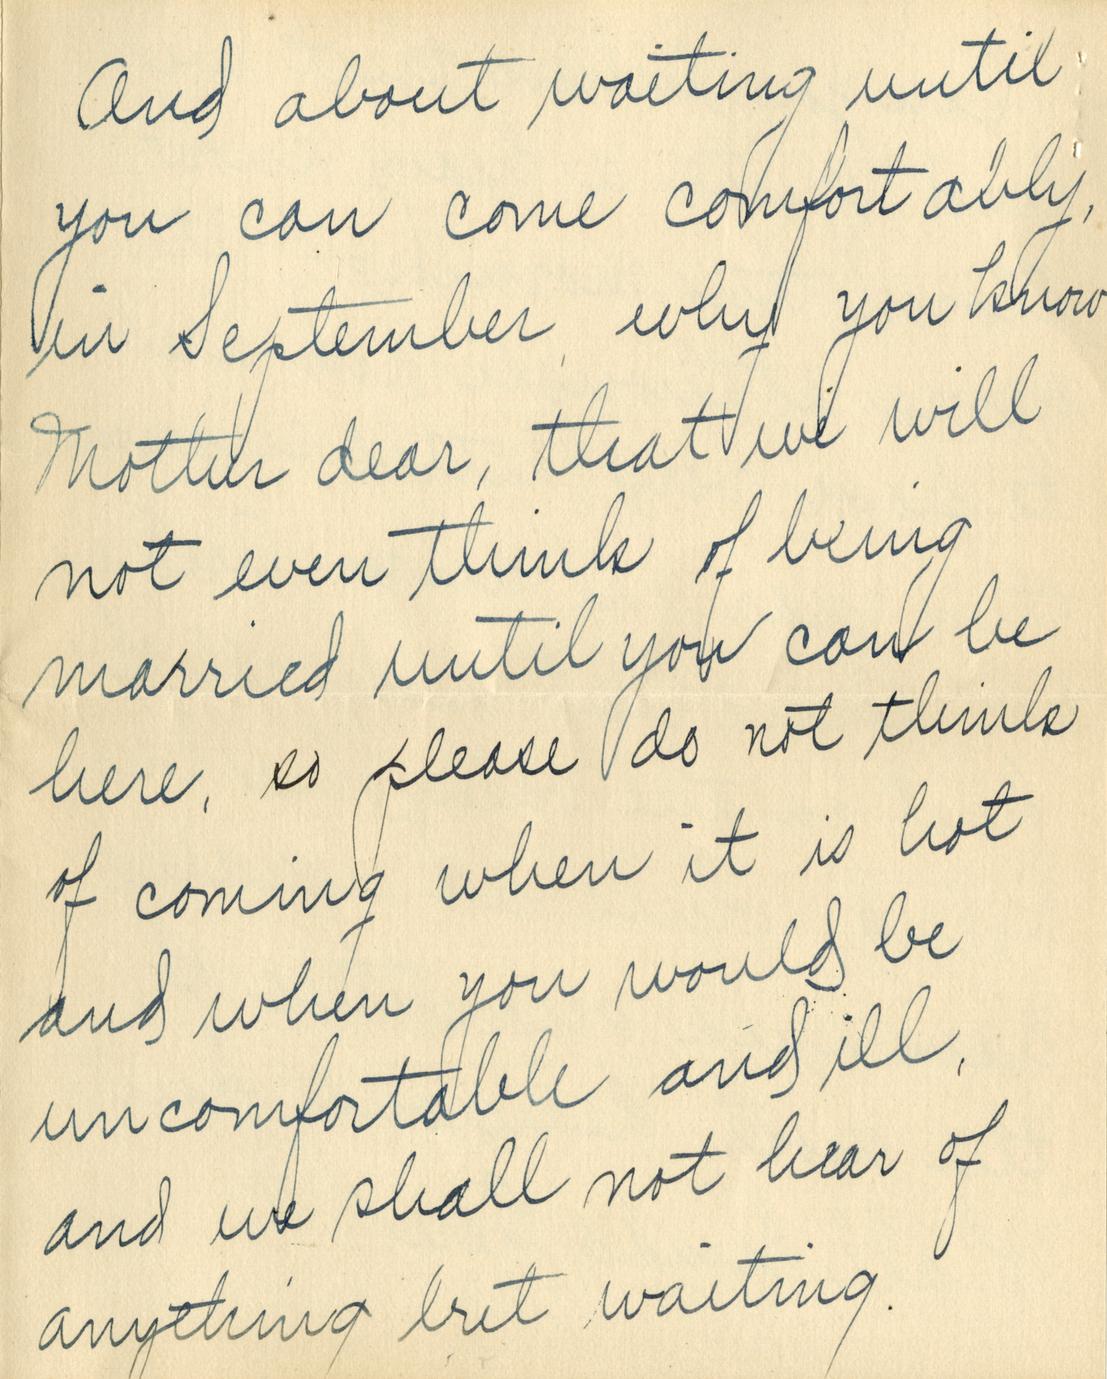 And about waiting until
you can come comfortably,
in September, why you know
Mother dear, that we will
not even think of being
married until you can be
here, so please do not think
of coming when it is hot
and when you would be
uncomfortable and ill,
and we shall not hear of
anything but waiting.